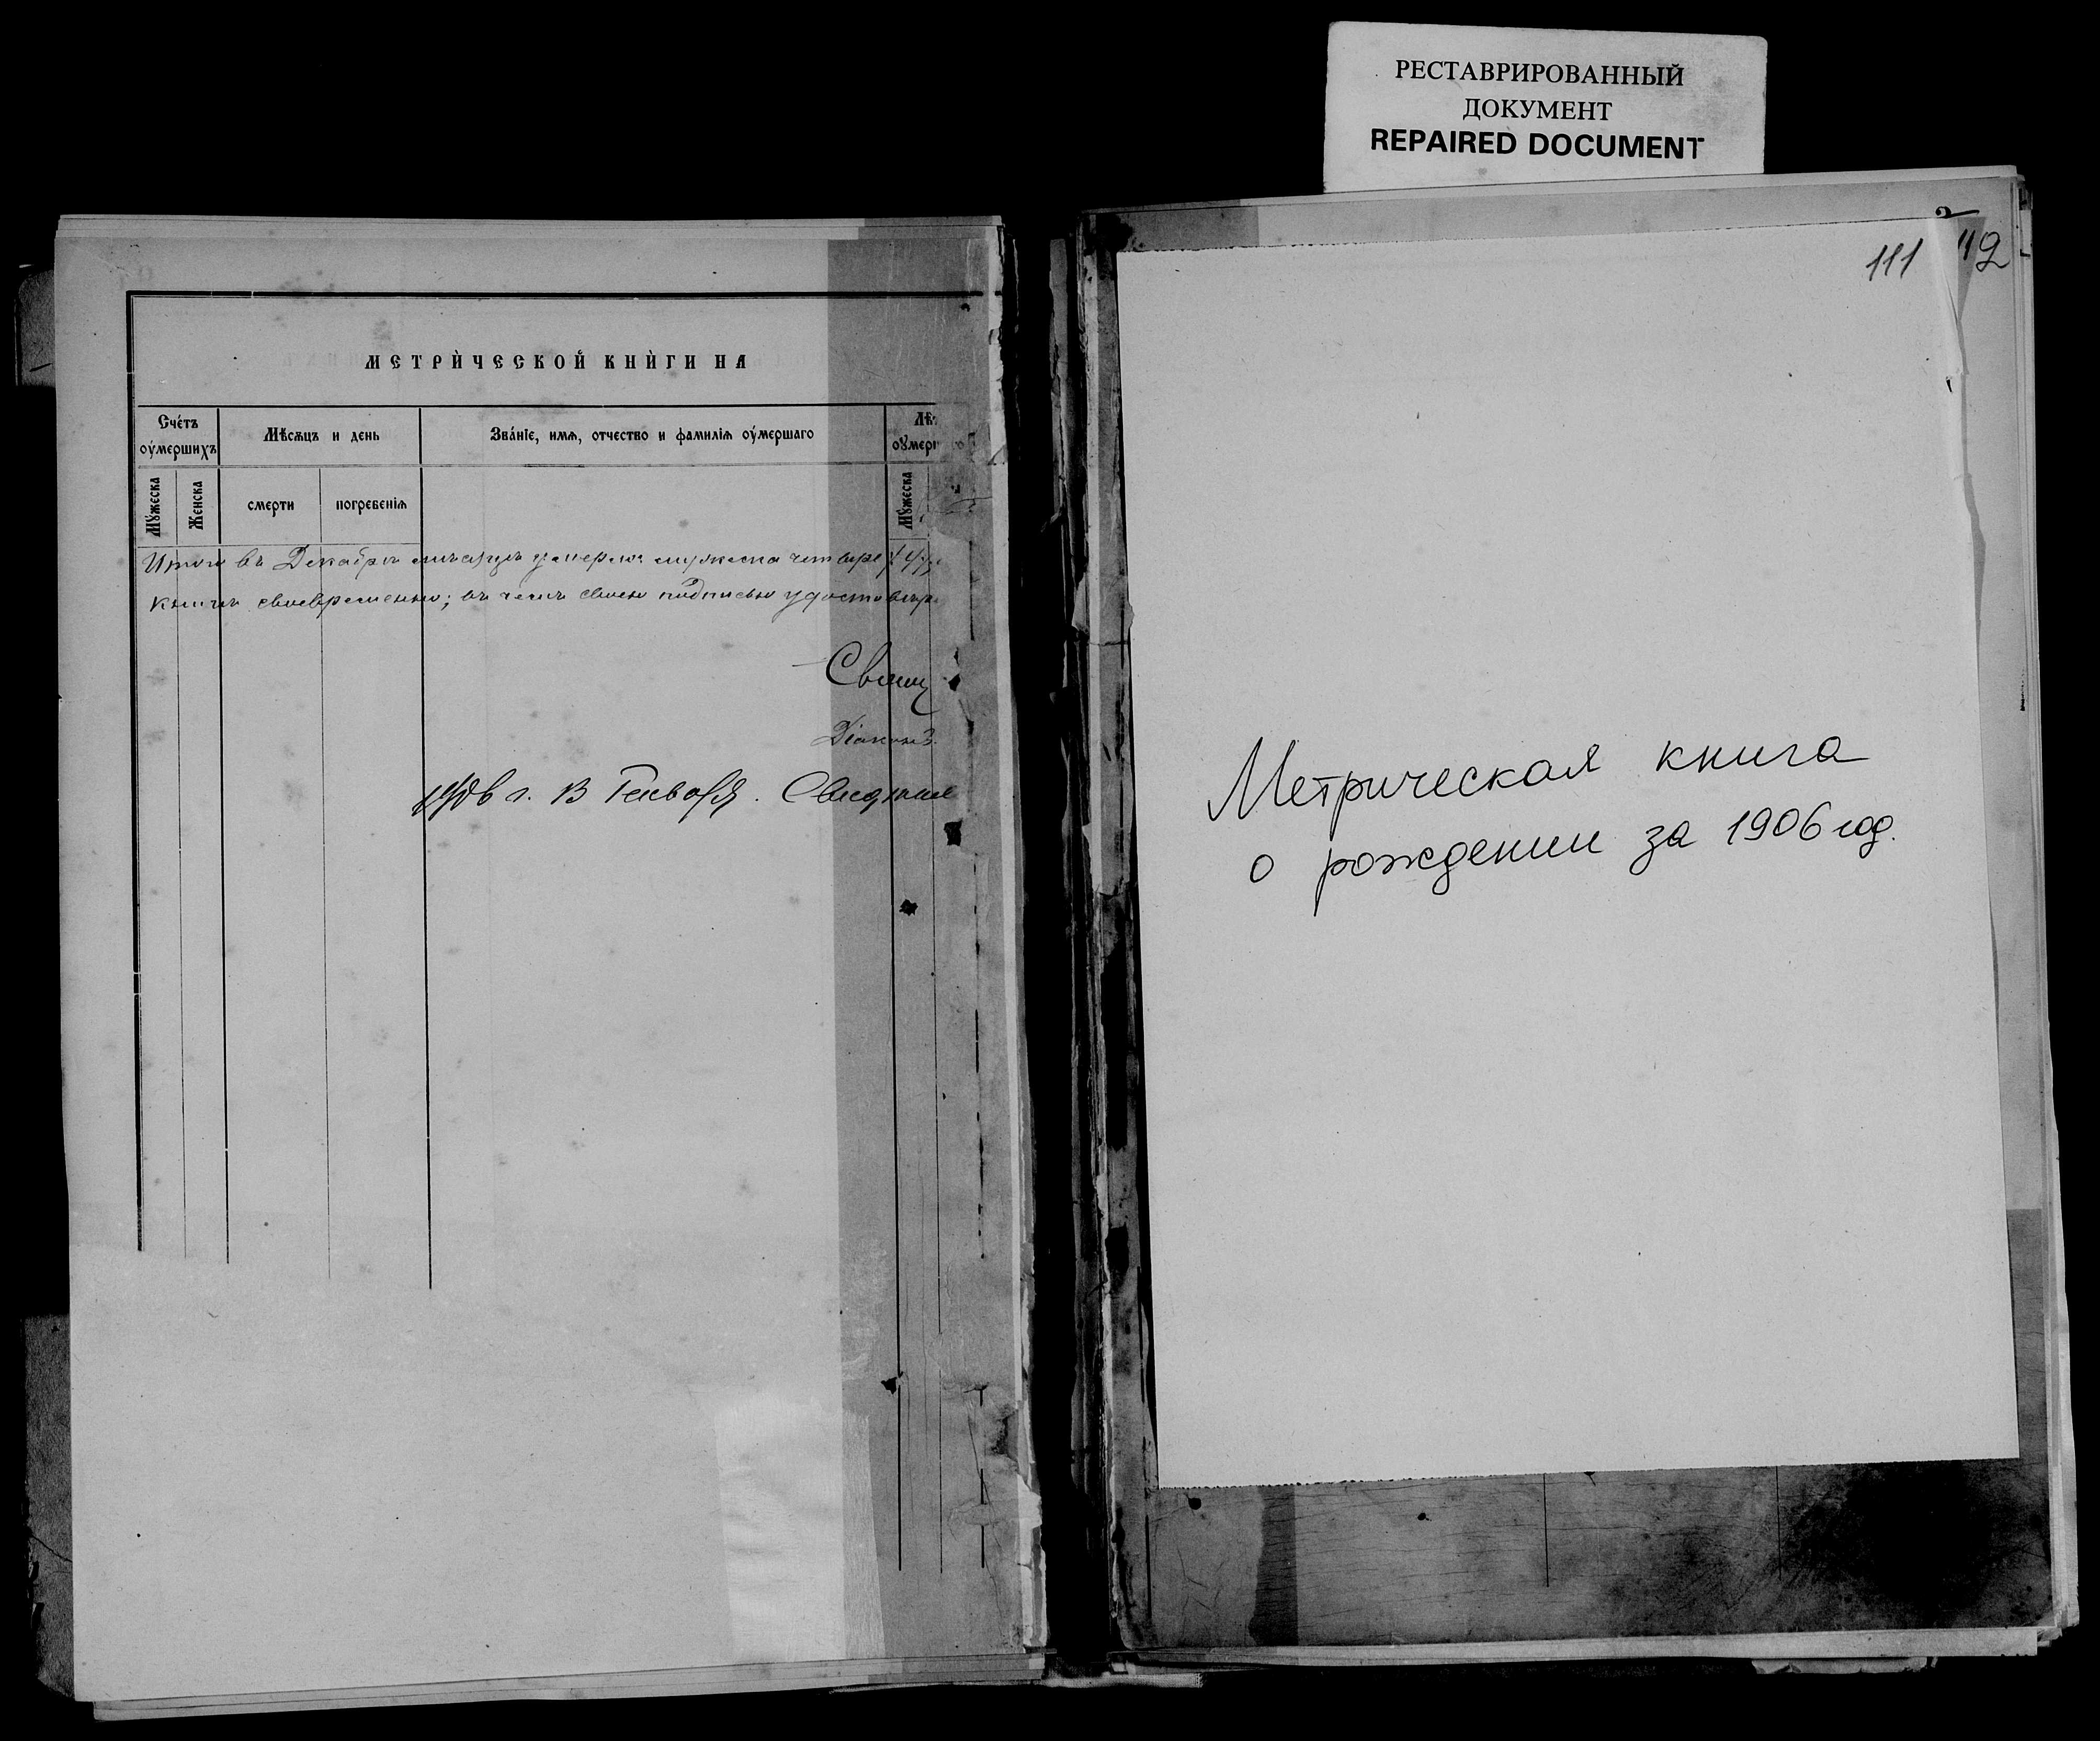 РЕСТАВРИРОВАННЫЙ
ДОКУМЕНТ
REPAIRED DOCUMENT
МЕТРИ́ЧЕСКОЙ КНИ́ГИ НА
Сче́тъ
оу́мершихъ
Мѣсѧцъ и день
Зва́нїе, имѧ, отчество и фамилїѧ оу́мершаго
Лѣ
оумер
Мꙋжеска
Женска
смерти
погребенїѧ
Мꙋжеска
Итого въ Декабрѣ мѣсяцѣ умерло: мужеска четыре
книги своевременно; въ чемъ своею подписью удостовѣр
Свящ
Діаконъ
1906 г.
111
112
Метрическая книга
о рождении за 1906 год.